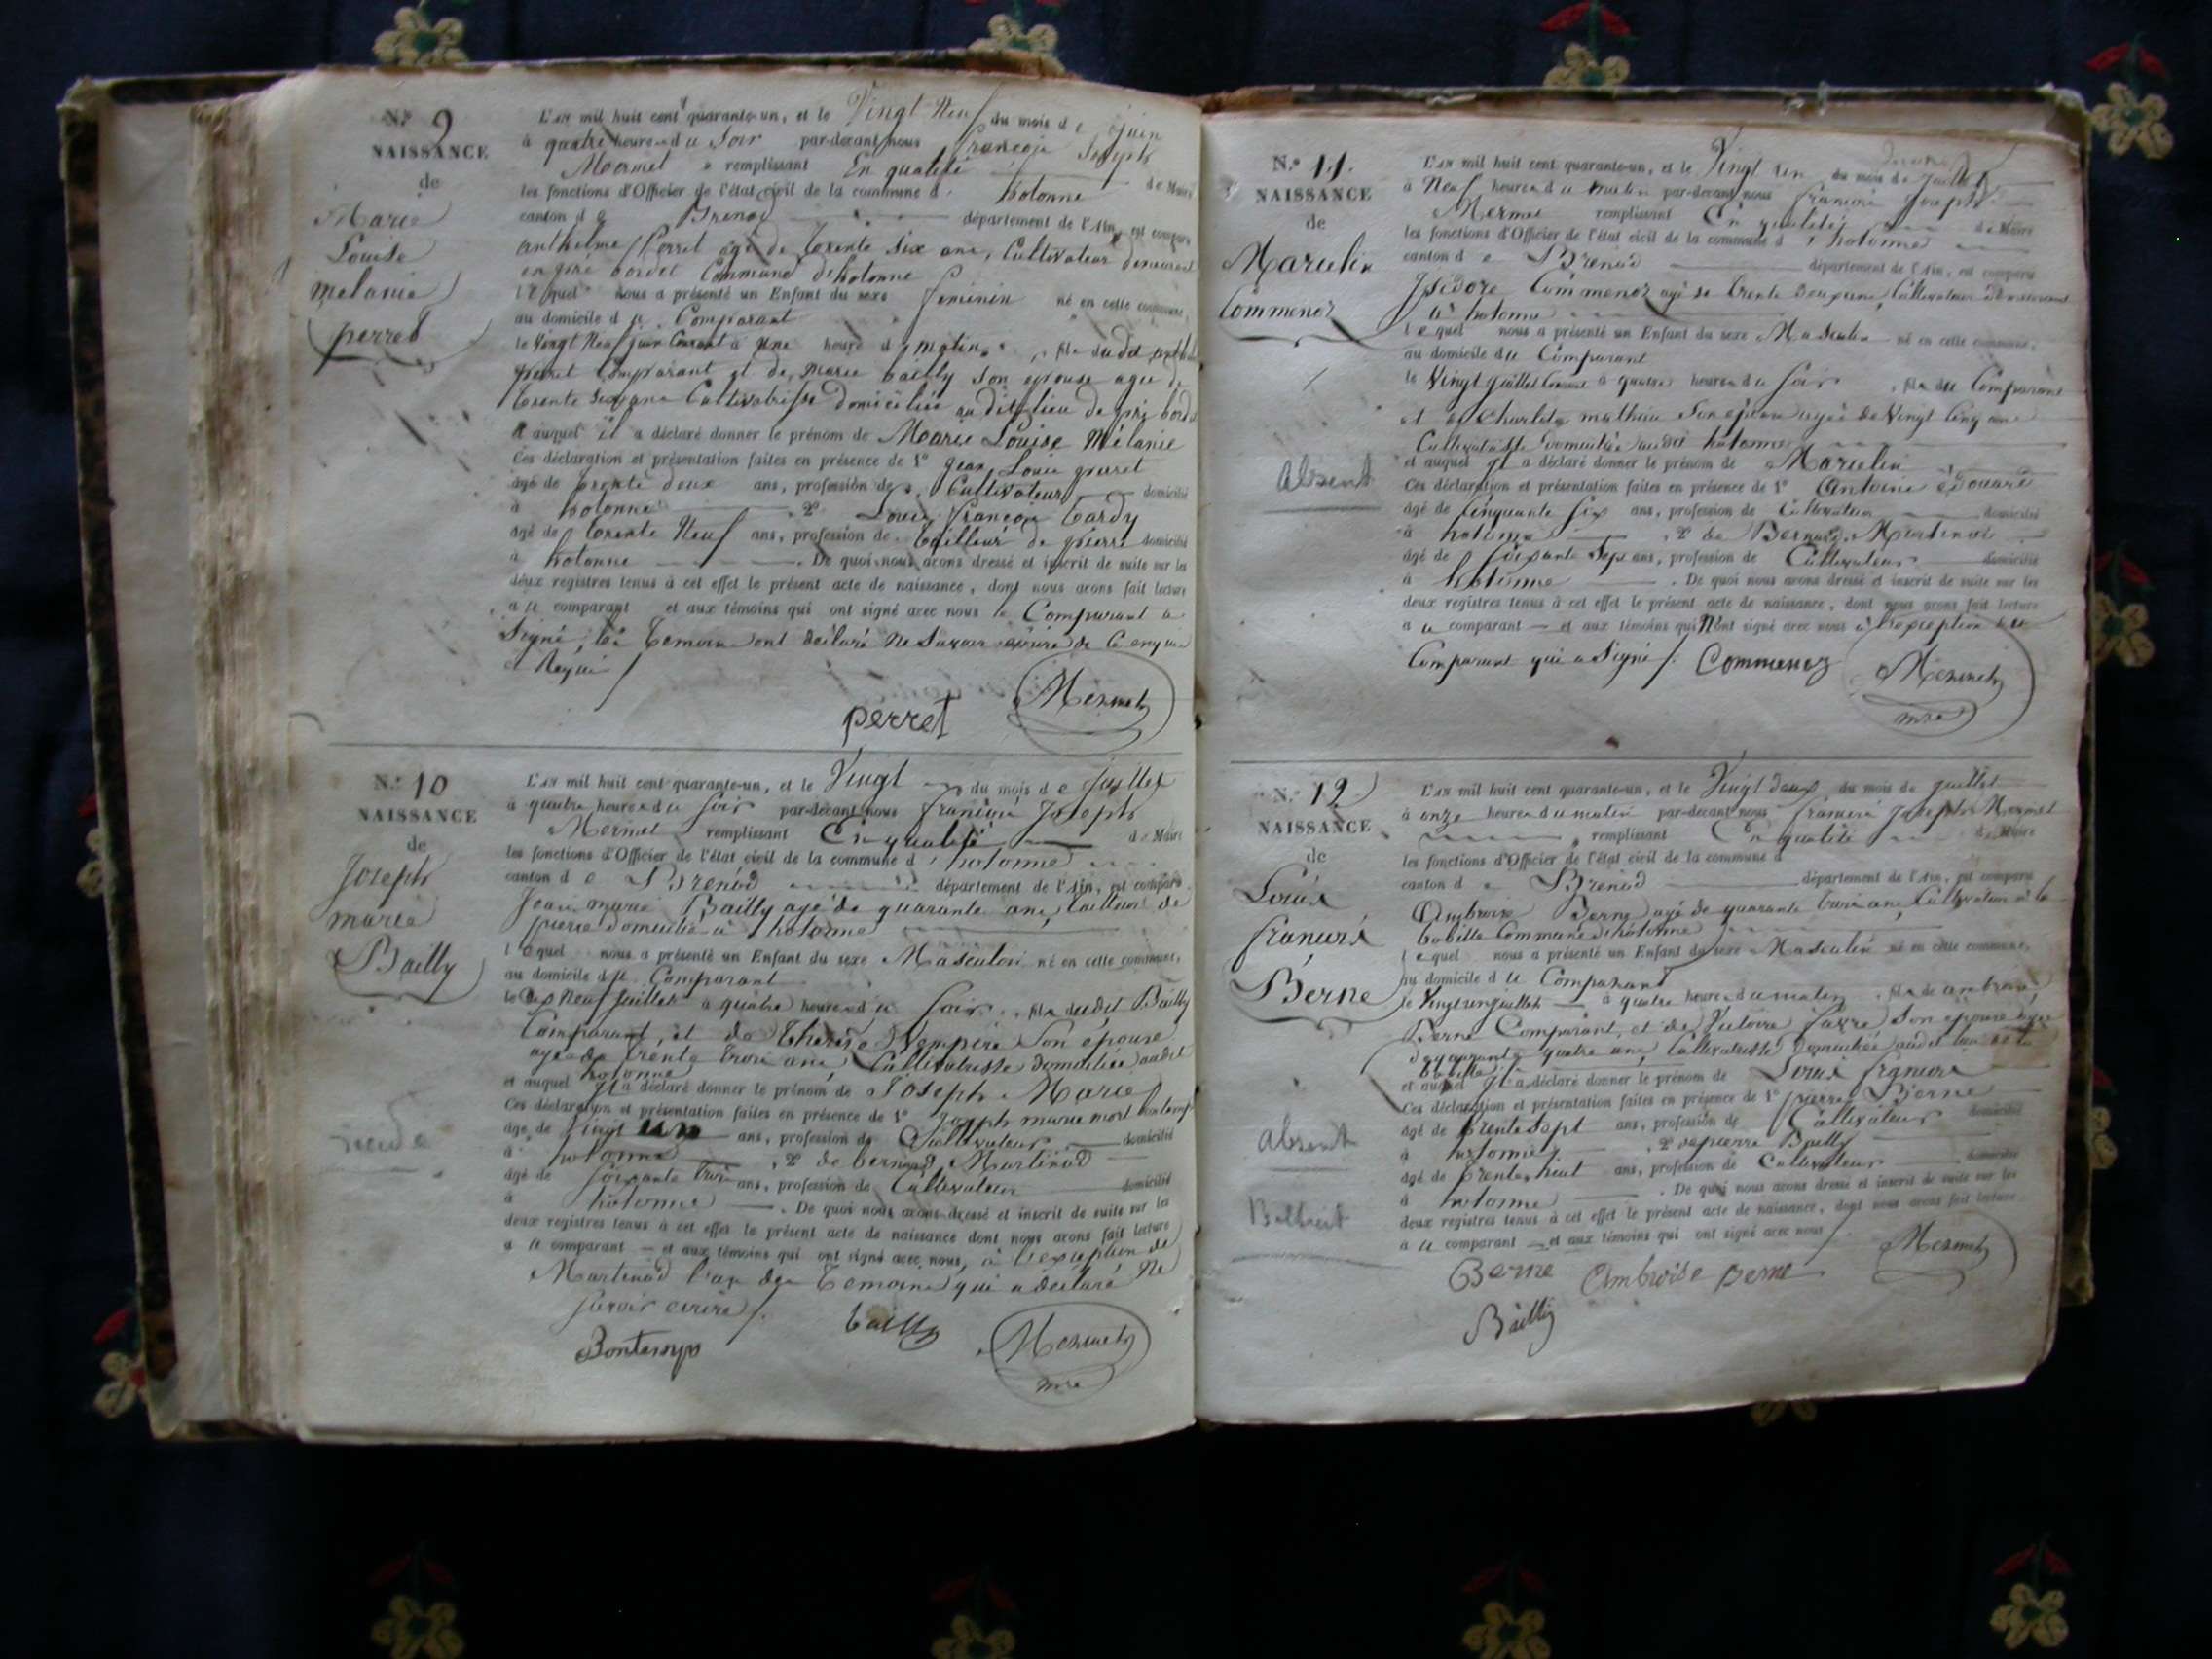 N.° 9
NAISSANCE
de
Marie
Louise
melanie
perret
L'an mil huit cent quarante-un, et le Vingt Neuf du mois de juin
à quatre heures du Soir par-devant nous françois Joseph
Mermet remplissant En qualité de Maire
les fonctions d'Officier de l'état civil de la commune d' hotonne
canton de Brenod département de l'Ain, est comparu
anthelme Perret agé de trente six ans, Cultivateur demeurant
Commune d'hotonne
lequel nous a présenté un Enfant du sexe feminin né en cette commune,
au domicile du Comparant
le Vingt Neuf juin Courant à une heure du matin, fille dudit
perret Comparant et de marie bailly son epouse agée de
trente ans Cultivatrisse domiciliée audit lieu de
et auquel il a déclaré donner le prénom de Marie Louise Mélanie
Ces déclaration et présentation faites en présence de 1° jean Louis
âgé de trente deux ans, profession de Cultivateur domicilié
à hotonne 2° Louis françois tardy
âgé de trente Neuf ans, profession de tailleur de pierre domicilié
à hotonne. De quoi nous avons dressé et inscrit de suite sur les
deux registres tenus à cet effet le présent acte de naissance, dont nous avons fait lecture
au comparant et aux témoins qui ont signé avec nous le Comparant a
Signé, les temoins ont déclaré ne Savoir ecrire de ce enquis
et Requis
perret Mermet
N.° 10
NAISSANCE
de
Joseph
marie
Bailly
L'an mil huit cent quarante-un, et le Vingt du mois de juillet
à quatre heures du soir par-devant nous françois Joseph
Mermet remplissant En qualité de Maire
les fonctions d'Officier de l'état civil de la commune d' hotonne
canton de Brenod département de l'Ain, est comparu
Jean marie Bailly agé de quarante ans, tailleur de
pierre domicilié à hotonne
lequel nous a présenté un Enfant du sexe Masculin né en cette commune,
au domicile du Comparant
le dix Neuf juillet à quatre heures du soir, fils dudit Bailly
Comparant, et de Therèse Son épouse
agée de trente trois ans, Cultivatrisse domiciliée audit
hotonne
et auquel il a déclaré donner le prénom de Joseph Marie
Ces déclaration et présentation faites en présence de 1° Joseph marie
âgé de Vingt ans, profession de Cultivateur domicilié
à hotonne, 2° de bernard Martinod
âgé de soixante trois ans, profession de Cultivateur domicilié
à hotonne. De quoi nous avons dressé et inscrit de suite sur les
deux registres tenus à cet effet le présent acte de naissance dont nous avons fait lecture
au comparant et aux témoins qui ont signé avec nous, à l'exception de
Martinod l'un des temoins qui a déclaré Ne
savoir ecrire
Bontemps bailly Mermet
mre
N.° 11.
NAISSANCE
de
Marcelin
Commenoz
absent
L'an mil huit cent quarante-un, et le Vingt un du mois de juillet
à Neuf heures du matin par-devant nous françois Joseph
Mermet remplissant En qualité de Maire
les fonctions d'Officier de l'état civil de la commune d' hotonne
canton de Brenod département de l'Ain, est comparu
Isidore Commenoz agé de trente Cultivateur demeurant
à hotonne
lequel nous a présenté un Enfant du sexe Masculin né en cette commune,
au domicile du Comparant
le Vingt juillet Courant à quatre heures du soir, fils du Comparant
et de mathieu Son épouse agée de Vingt Cinq ans
Cultivatrisse domiciliée audit hotonne
et auquel il a déclaré donner le prénom de Marcelin
Ces déclaration et présentation faites en présence de 1° Antoine
âgé de Cinquante six ans, profession de Cultivateur domicilié
à hotonne, 2° de Bernard Martinod
âgé de soixante ans, profession de Cultivateur domicilié
à hotonne. De quoi nous avons dressé et inscrit de suite sur les
deux registres tenus à cet effet le présent acte de naissance, dont nous avons fait lecture
au comparant et aux témoins qui N'ont signé avec nous à l'exception du
Comparant qui a Signé Commenoz Mermet
mre
N.° 12
NAISSANCE
de
Louis
françois
Berne
absent
L'an mil huit cent quarante-un, et le Vingt deux du mois de juillet
à onze heures du matin par-devant nous françois joseph Mermet
remplissant En qualité de Maire
les fonctions d'Officier de l'état civil de la commune d
canton de Brenod département de l'Ain, est comparu
Ambroise Berne agé de quarante trois ans, Cultivateur à la
Commune d'hotonne
lequel nous a présenté un Enfant du sexe Masculin né en cette commune,
au domicile du Comparant
le Vingt un juillet à quatre heures du matin, fils de ambroise
Berne Comparant, et de Victoire favre Son épouse agée
de quarante quatre ans, Cultivatrisse domiciliée audit lieu de la
et auquel il a déclaré donner le prénom de Louis françois
Ces déclaration et présentation faites en présence de 1° pierre Berne
âgé de trente sept ans, profession de Cultivateur domicilié
à hotonne, 2° de pierre Bailly
âgé de trente huit ans, profession de Cultivateur domicilié
à hotonne. De quoi nous avons dressé et inscrit de suite sur les
deux registres tenus à cet effet le présent acte de naissance, dont nous avons fait lecture
au comparant et aux témoins qui ont signé avec nous
Mermet
Berne Ambroise Berne
Bailly